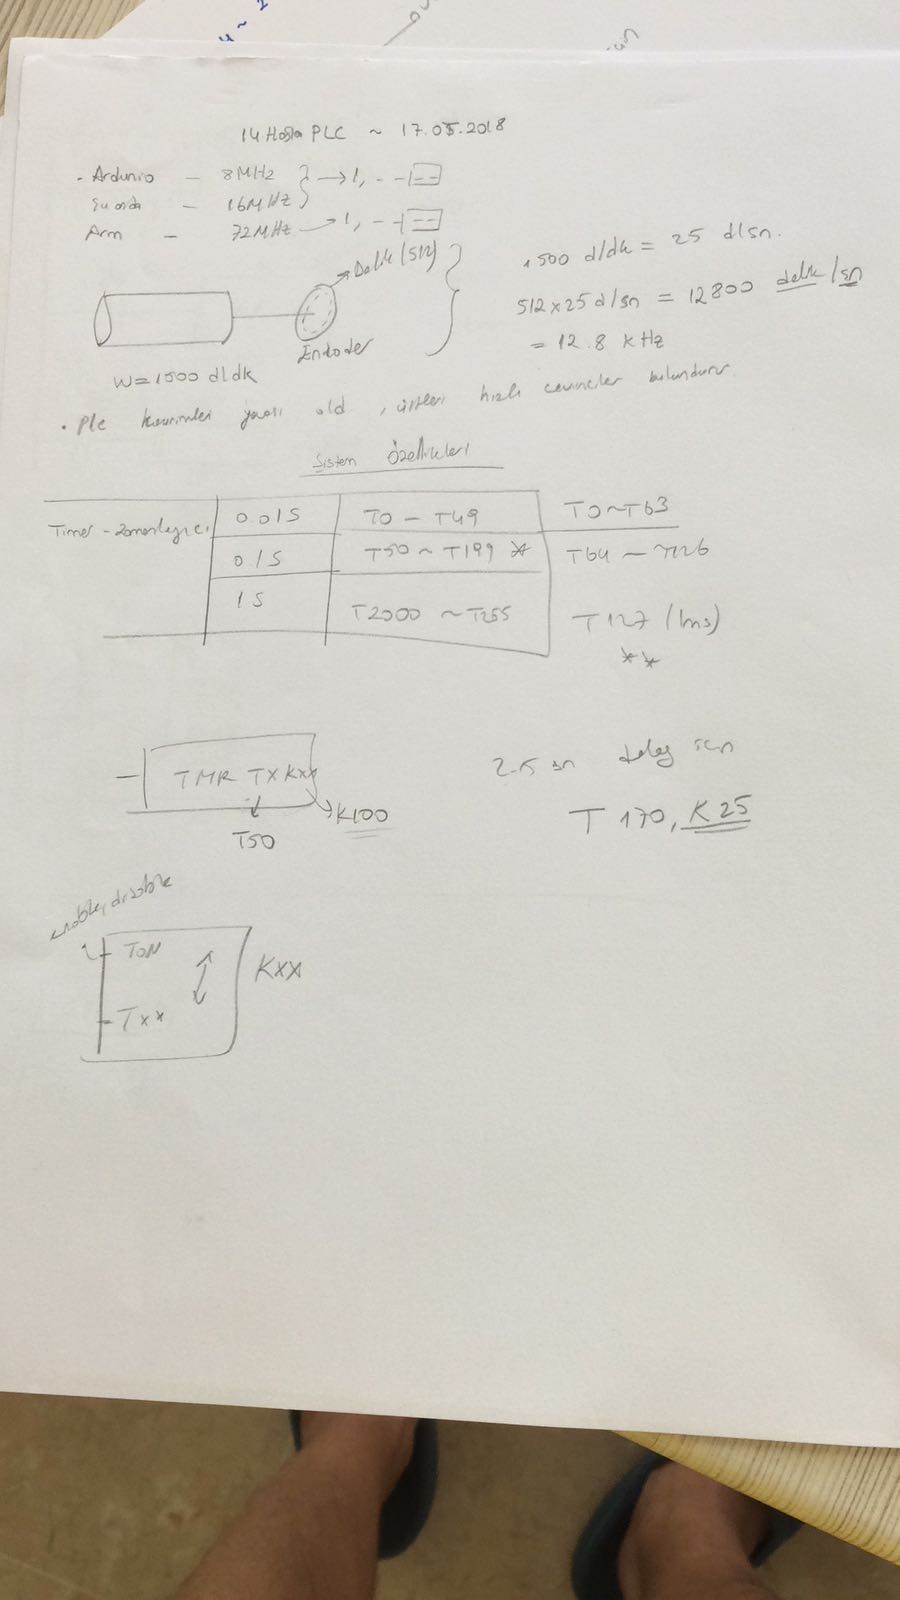 14 Hafta PLC ~ 17.05.2018
- Arduino - 8MHz → 1, - -
- 16MHz
Arm - 72MHz → 1, - -
Delik (512)
Encoder
W=1500 d/dk
1500 d/dk = 25 d/sn.
512x25 d/sn = 12800 delik/sn
= 12.8 kHz
• Plc yavaş old , hızlı bulundurur.
Sistem Özellikleri
Timer - Zamanlayıcı
0.01S T0 - T49 T0~T63
0.1S T50 ~ T199 * T64 ~ T126
1S T2000 ~ T255 T127 (1ms)
**
TMR TX Kxx
T50
K100
2.5 sn delay için
T 170, K25
enable, disable
TON
Txx
Kxx